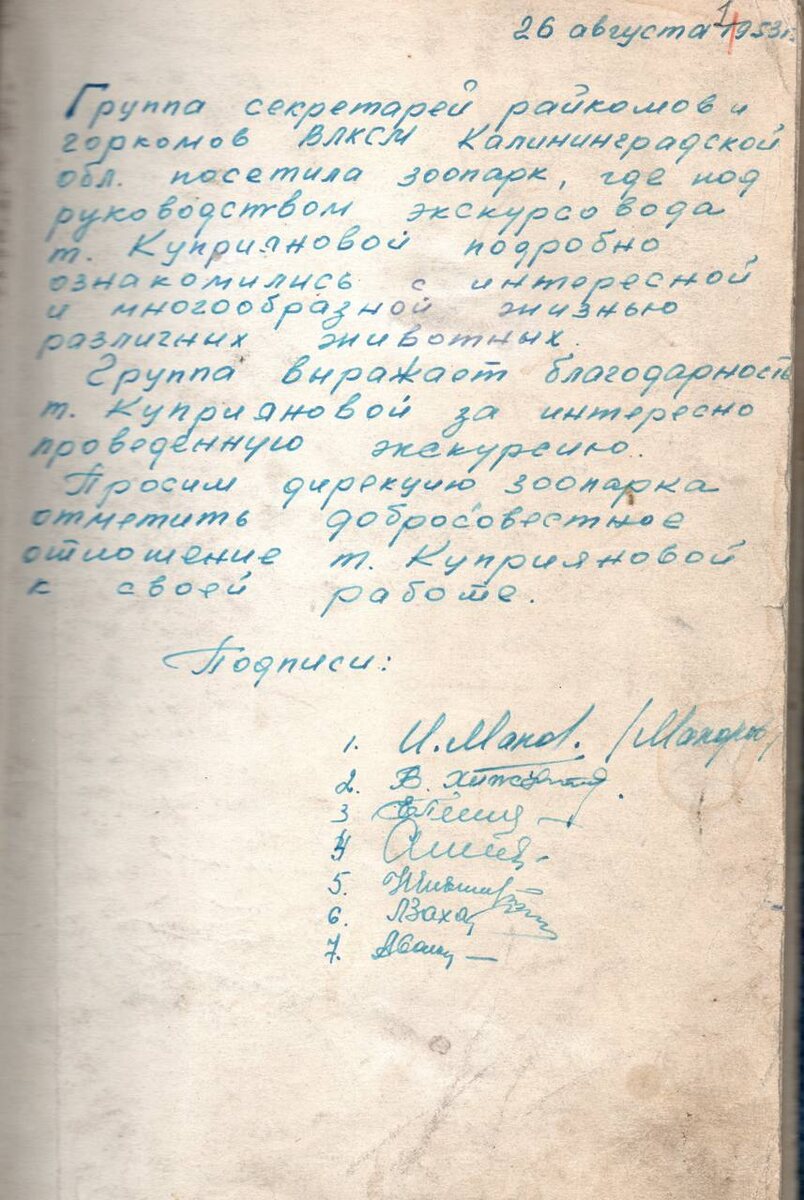 1
26 августа 1953 г.
Группа секретарей райкомов и
горкомов ВЛКСМ Калининградской
обл. посетила зоопарк, где под
руководством экскурсовода
т. Куприяновой подробно
ознакомились с интересной
и многообразной жизнью
различных животных.
Группа выражает благодарность
т. Куприяновой за интересно
проведенную экскурсию.
Просим дирекцию зоопарка
отметить добросовестное
отношение т. Куприяновой
к своей работе.
Подписи:
1. И.
2. В.
3
4
5.
6.
7.